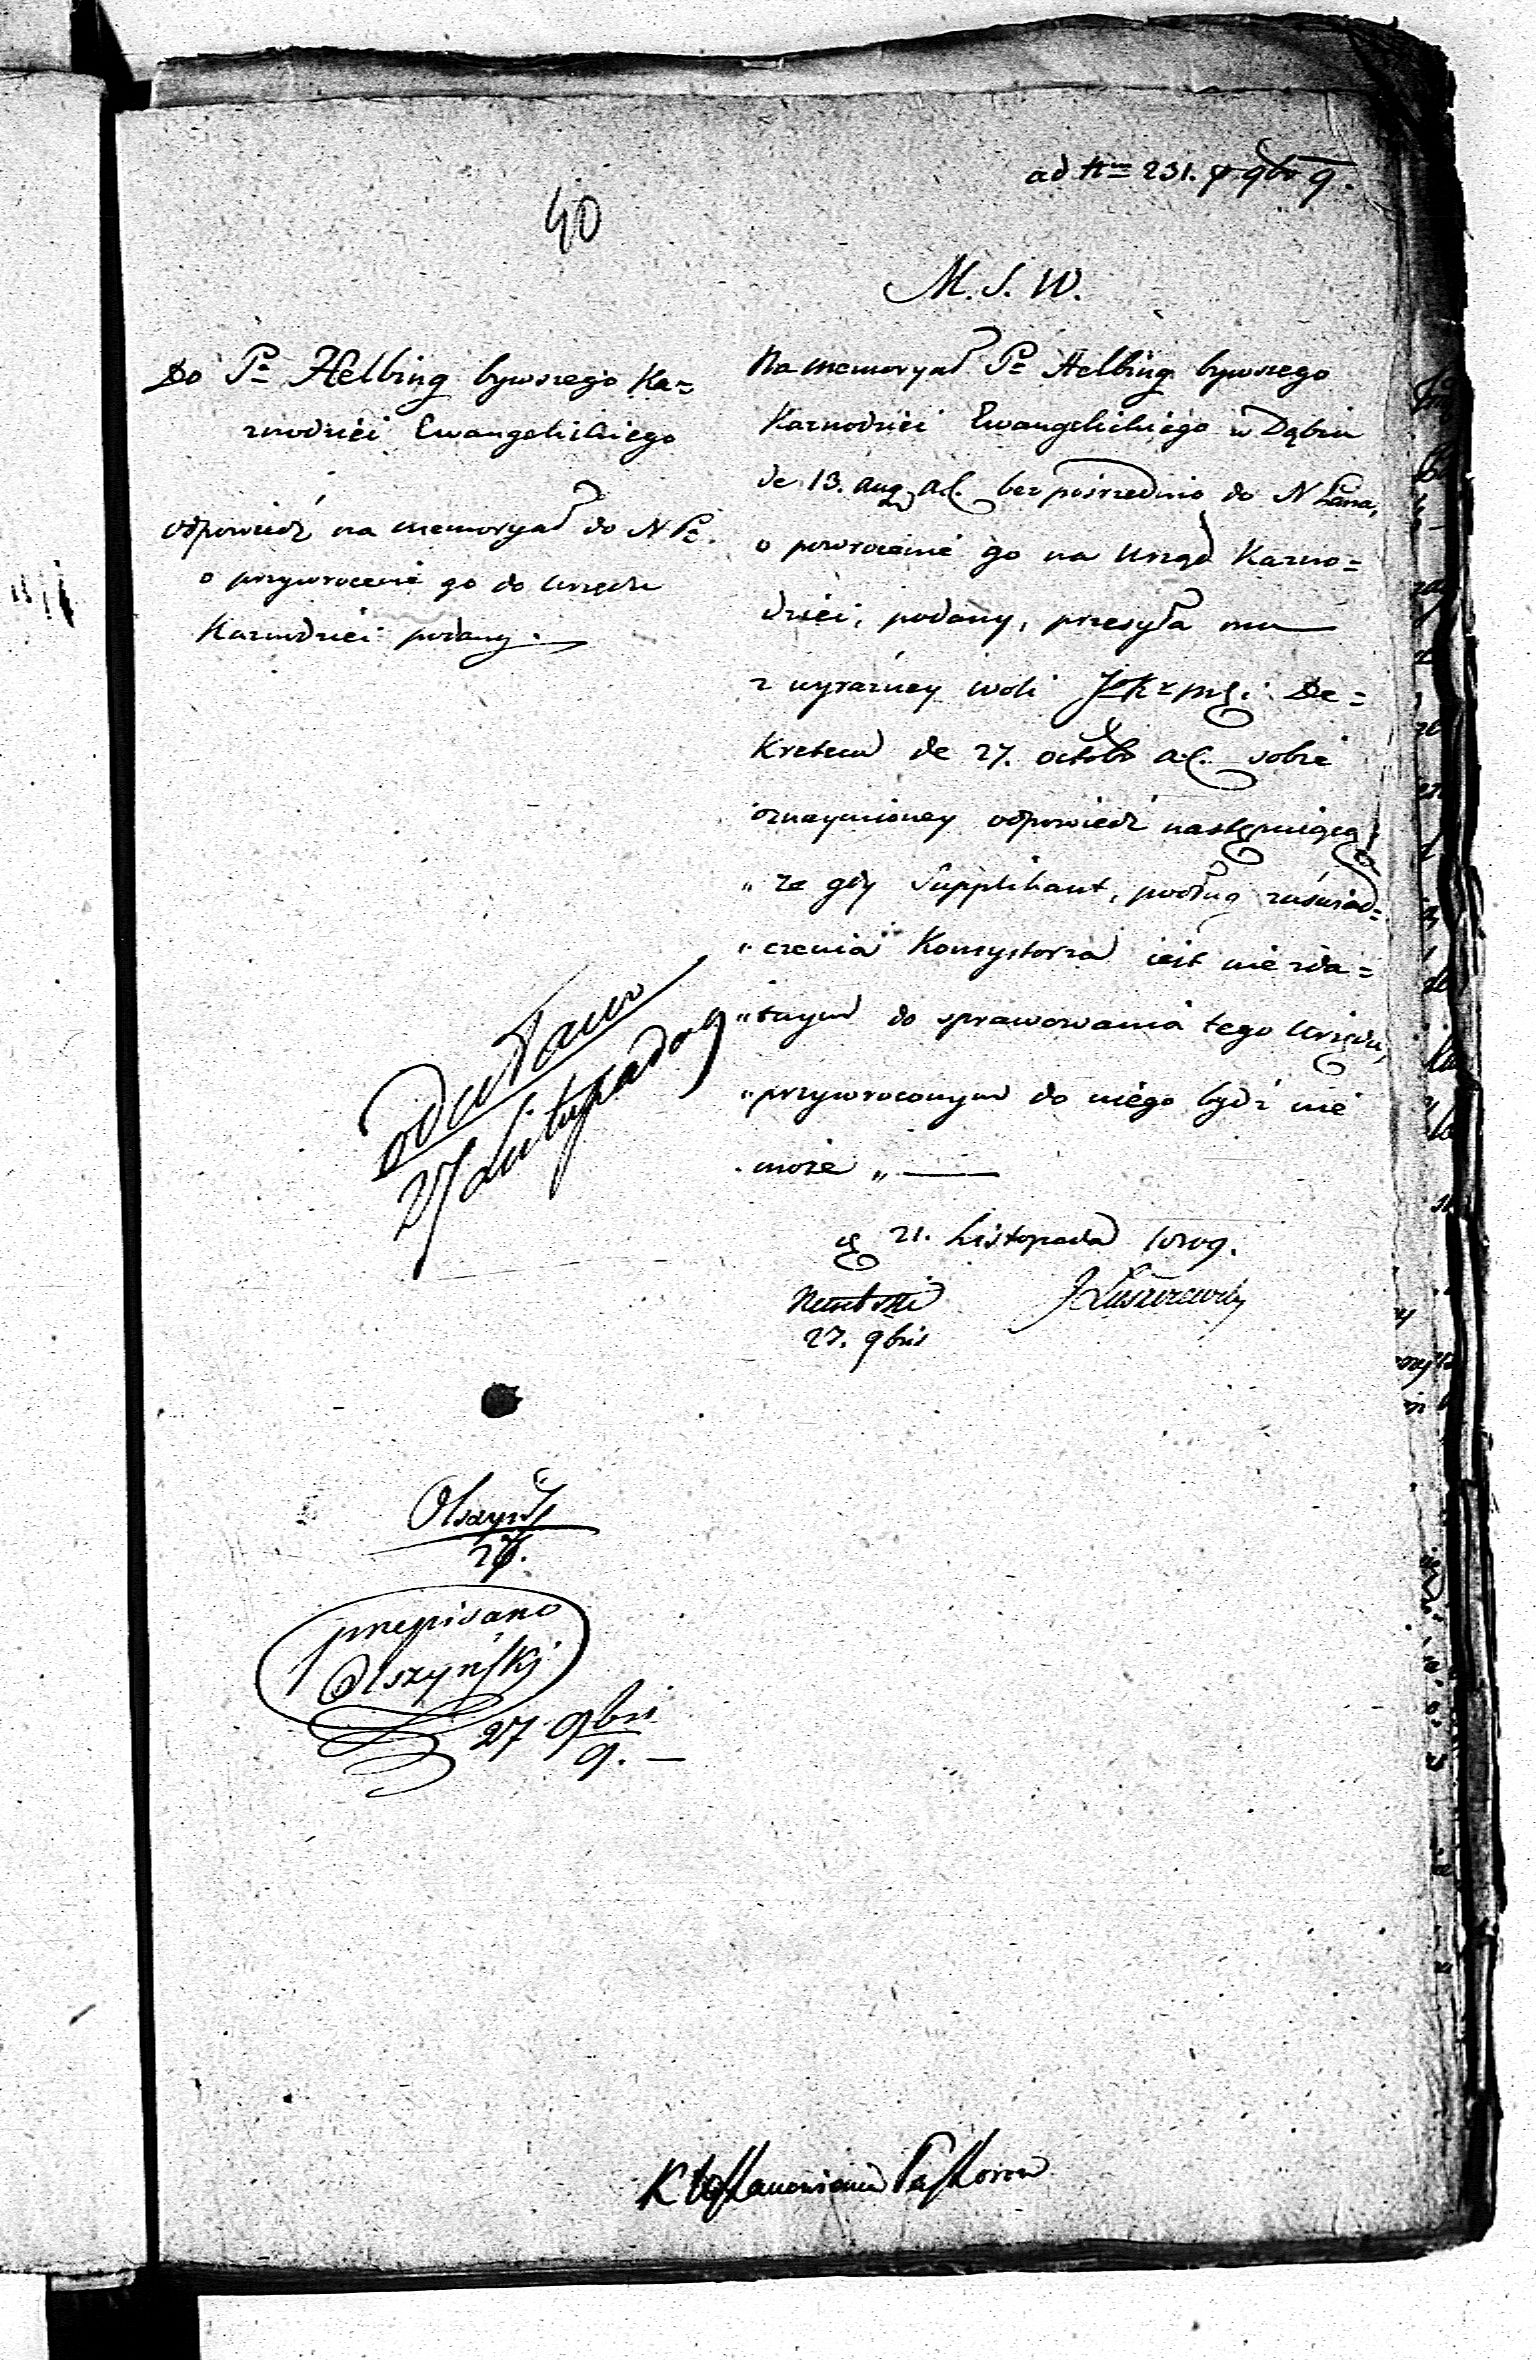 40
ad Nm 231. 9br 9.
M. S. W.
Do Pa Helbing bywszego Ka=
znodziei Ewangelickiego
odpowiedź na memoryał do N Pa.
o przywrocenie go do urzędu
Kaznodziei podany.
Na memoryał Pa Helbing bywszego
Kaznodziei Ewangelickiego w Dąbiu
de 13. aug a.c. bezpośrzednio do N Pana,
o powrocenie go na Urząd Kazno=
dziei, podany, przesyła mu
z wyraźney woli JKKmści De=
kretem de 27. octobr a.c. sobie
oznaymioney odpowiedź następuiącą
„ że gdy Supplikant, podług zaświad=
„ czenia Konsystorza iest niezda=
„ tnym do sprawowania tego Urzędu,
„ przywroconym do niego bydź nie
może „
21. Listopada 1809.
J Łuszczewski
27. 9bris
oddałam
27 Listopada 9
Olszyńs
27.
przepisano
Olszyński
27 9bris
9.
Pastorow